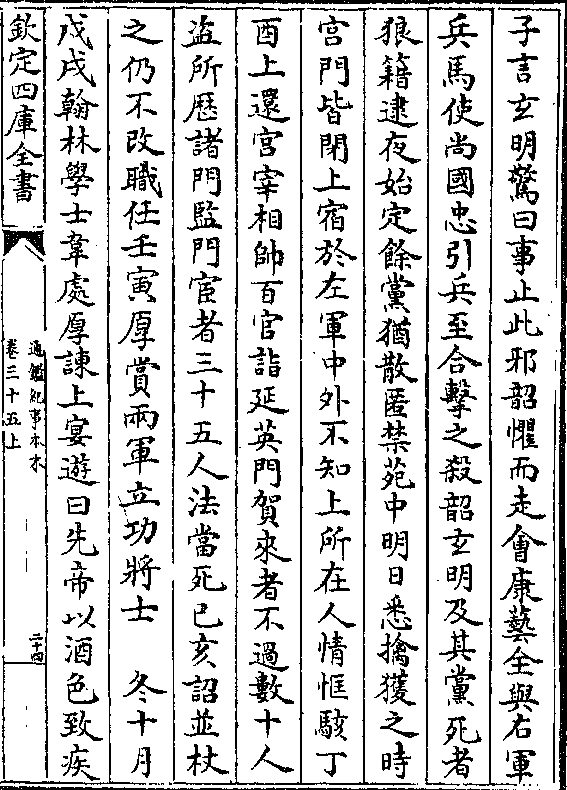 子言玄明驚曰事止此邪韶懼而走會康藝全與右軍
兵馬使尚國忠引兵至合擊之殺韶玄明及其黨死者
狼籍逮夜始定餘黨猶散匿禁苑中明日悉擒獲之時
宮門皆閉上宿於左軍中外不知上所在人情恇駭丁
酉上還宮宰相帥百官詣延英門賀來者不過數十人
盜所歴諸門監門宦者三十五人法當死己亥詔並杖
之仍不改職任壬寅厚賞兩軍立功將士　冬十月
戊戌翰林學士韋處厚諫上宴遊曰先帝以酒色致疾
欽定四庫全書
通鑑紀事本末
卷三十五上
二十四